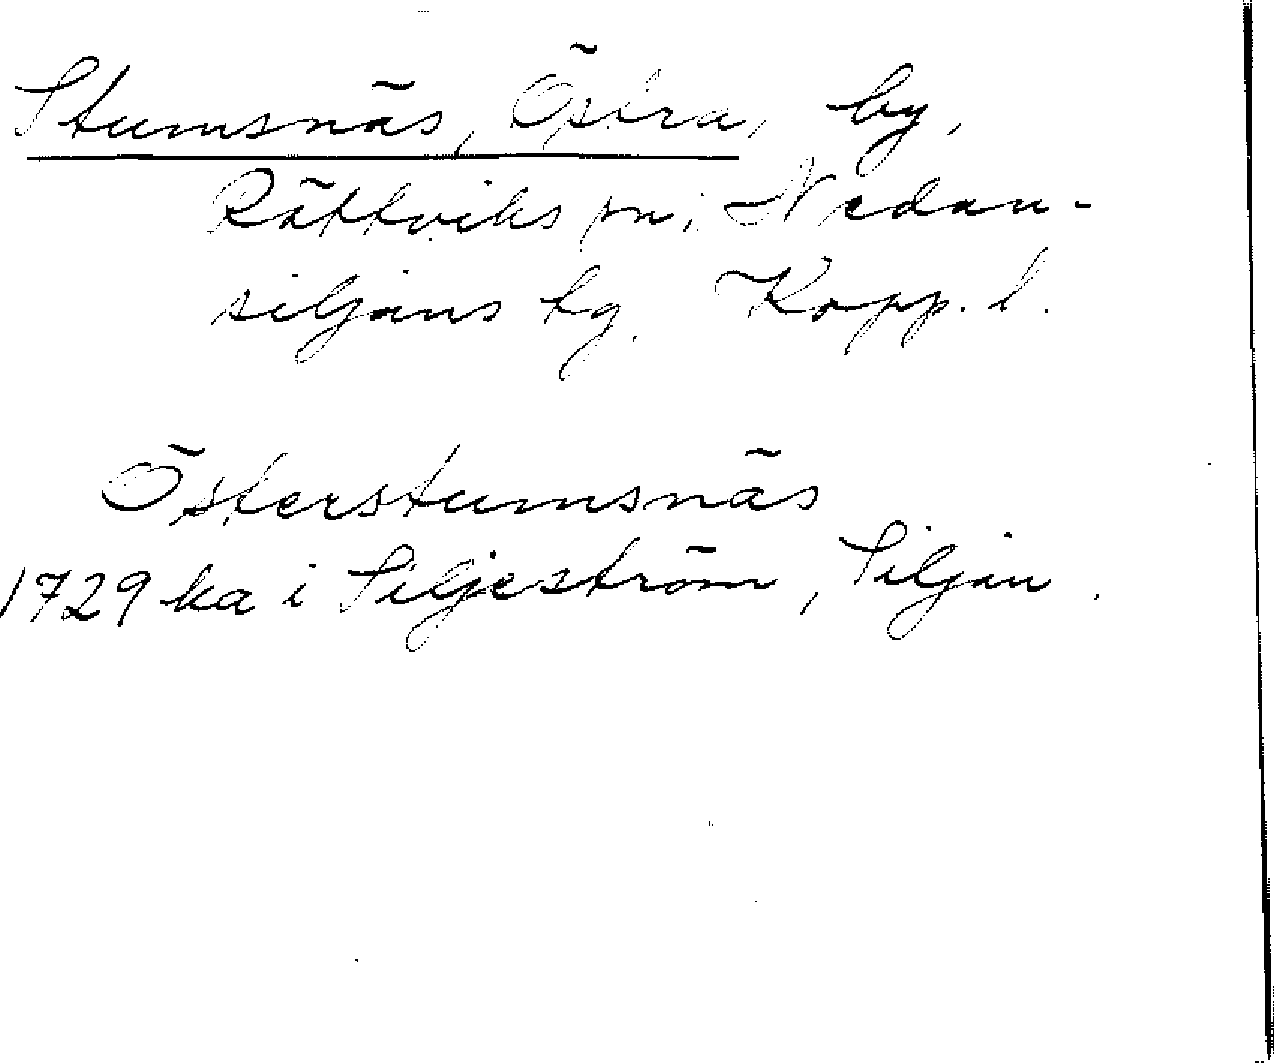 Stumsnäs, Östra, by,
Rättviks sn, Nedan-
siljans tg. Kopp. l.
Österstumsnäs
1729 ka i Siljeström, Siljan.